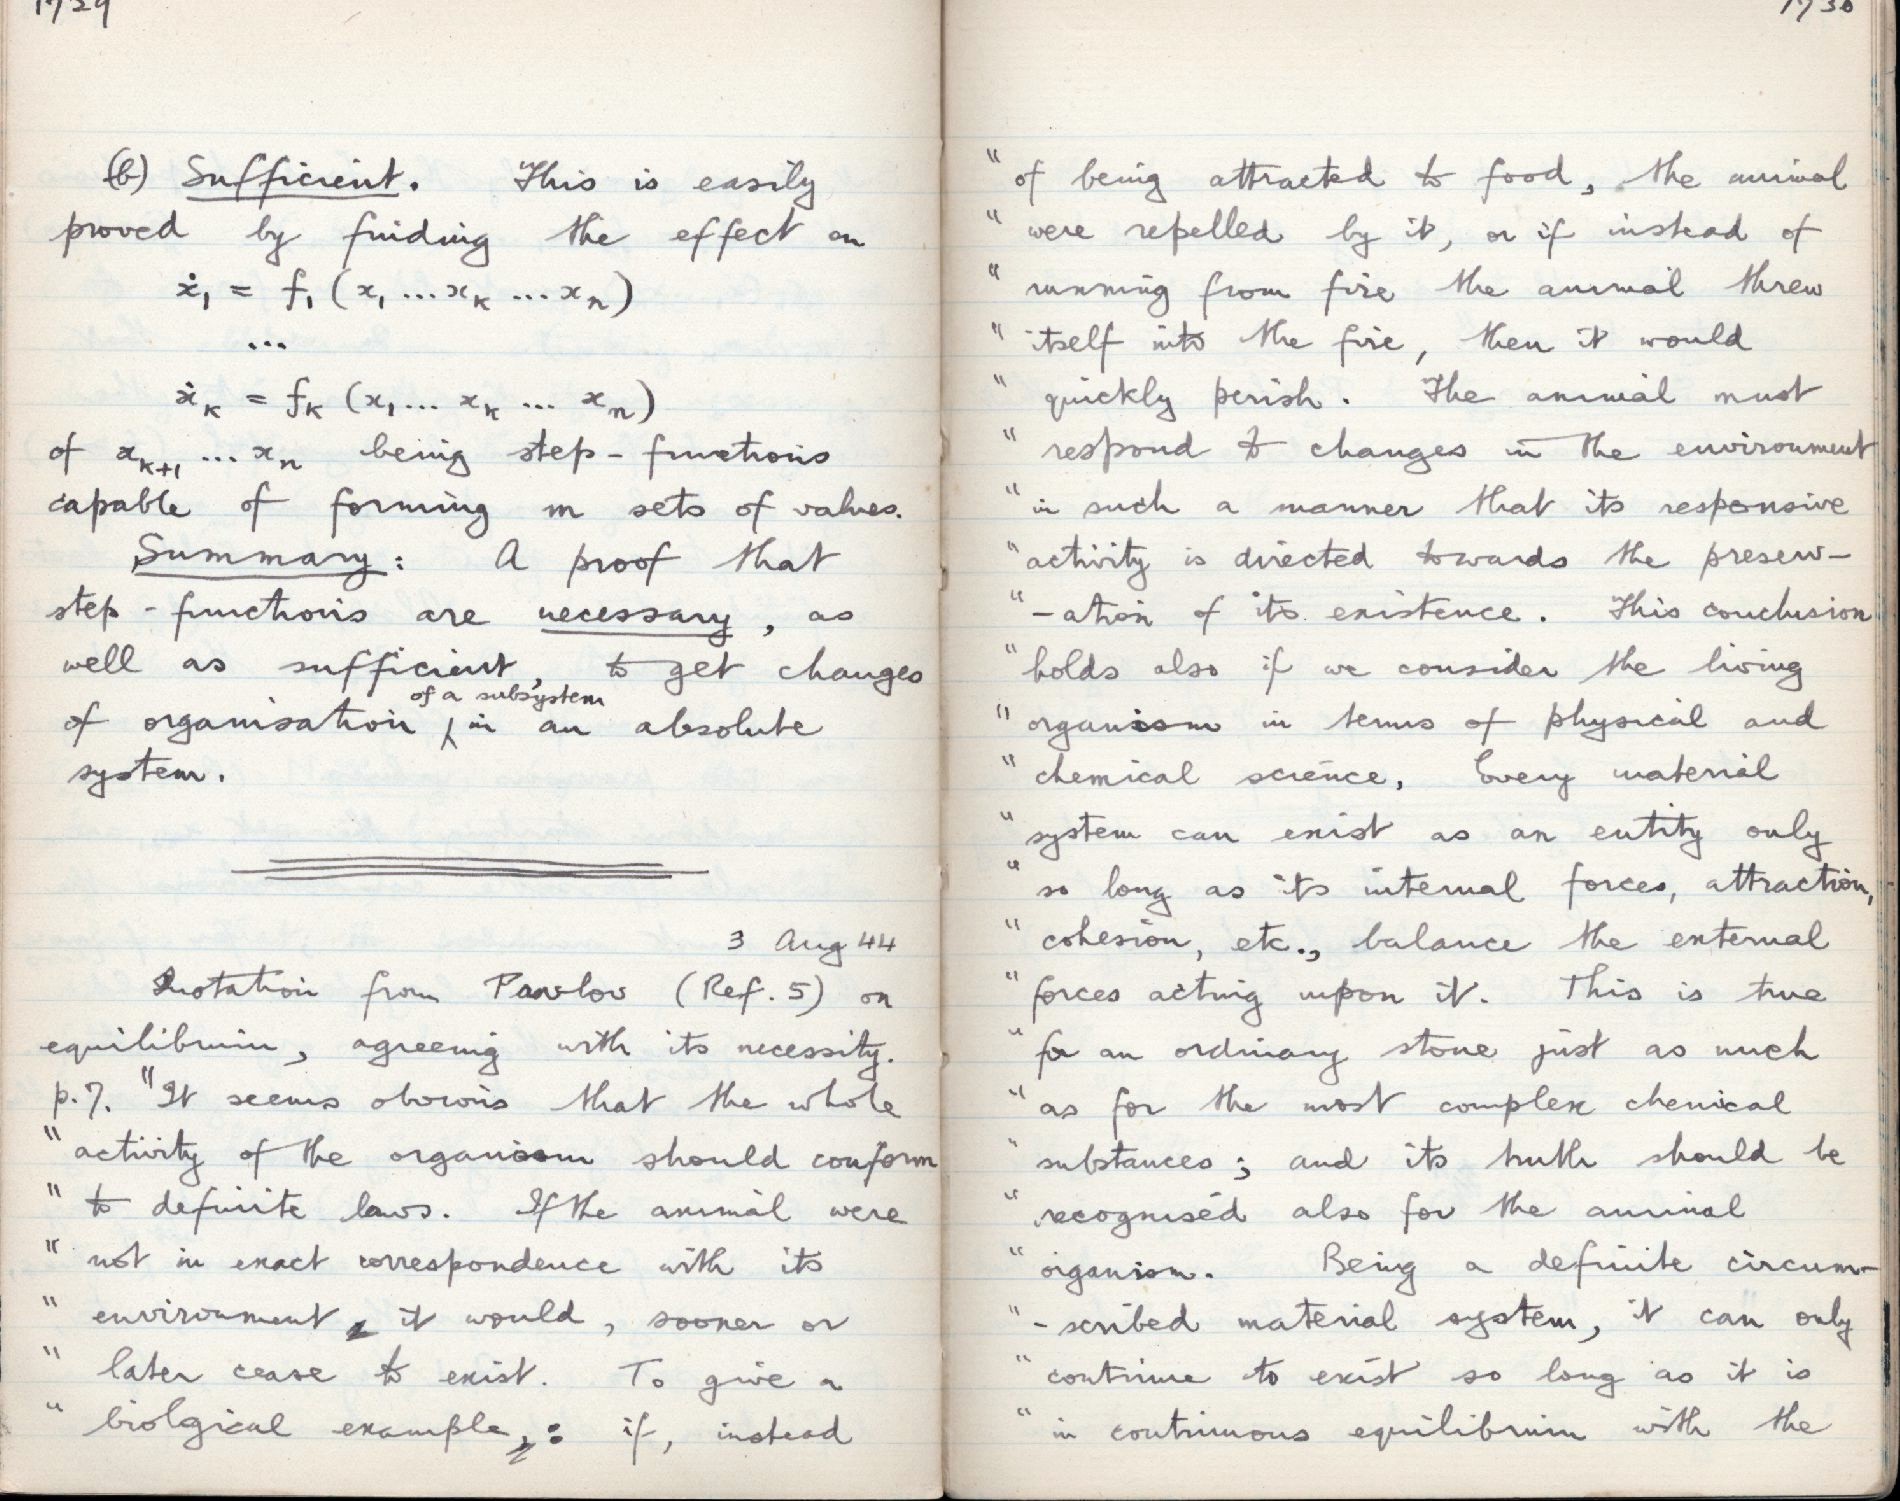 1729
(b) Sufficient. This is easily
proved by finding the effect on
ẋ₁ = f₁ (x₁ ... xₖ ... xₙ)
...
ẋₖ = fₖ (x₁ ... xₖ ... xₙ)
of xₖ₊₁ ... xₙ being step-functions
capable of forming m sets of values.
Summary: A proof that
step-functions are necessary, as
well as sufficient, to get changes
of a subsystem
of organisation ⁁ in an absolute
system.
3 Aug 44
Quotation from Pavlov (Ref. 5) on
equilibrium, agreeing with its necessity.
p.7. "It seems obvious that the whole
" activity of the organism should conform
" to definite laws. If the animal were
" not in exact correspondence with its
" environment, it would, sooner or
" later cease to exist. To give a
" biolgical example: if, instead
1730
" of being attracted to food, the animal
" were repelled by it, or if instead of
" running from fire the animal threw
" itself into the fire, then it would
" quickly perish. The animal must
" respond to changes in the environment
" in such a manner that its responsive
" activity is directed towards the preserv-
" -ation of its existence. This conclusion
" holds also if we consider the living
" organism in terms of physical and
" chemical science. Every material
" system can exist as an entity only
" so long as its internal forces, attraction,
" cohesion, etc., balance the external
" forces acting upon it. This is true
" for an ordinary stone just as much
" as for the most complex chemical
" substances; and its truth should be
" recognised also for the animal
" organism. Being a definite circum-
" -scribed material system, it can only
" continue to exist so long as it is
" in continuous equilibrium with the